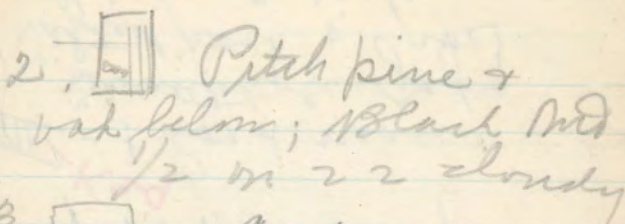 2. Pitch pine +
oak below; Black Md
1/2 on 22 cloudy
3